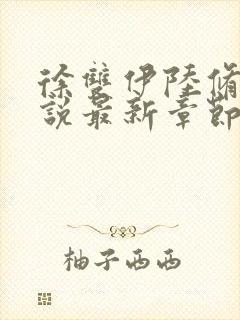 徐雙伊陸脩
說最新章節
柚子西西